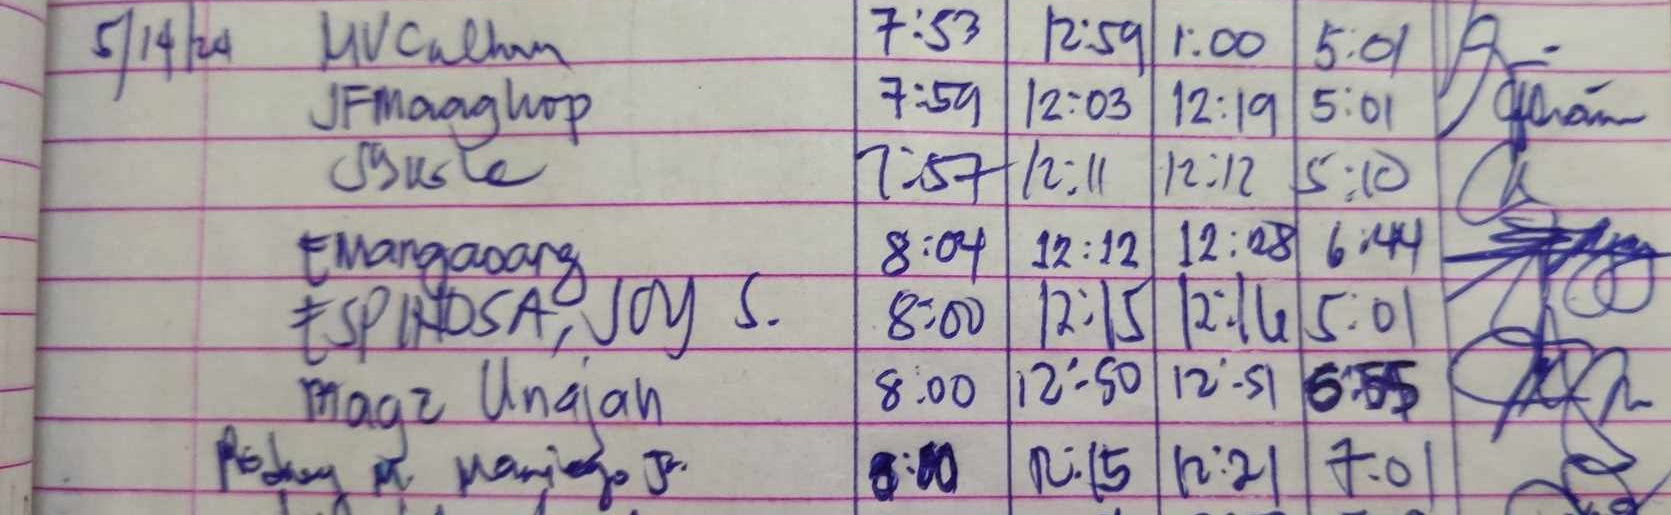 5/14/24 MVCalhun 7:53 12:59 1:00 5:01
JFMaaghop 7:59 12:03 12:19 5:01
7:57 12:11 12:12 5:10
EMangaoang 8:04 12:12 12:28 6:44
ESPINOSA, JOY S. 8:00 12:15 12:16 5:01
Magz Unajan 8:00 12:50 12:51
Rodney M. Maniego Jr. 12:15 12:21 7:01